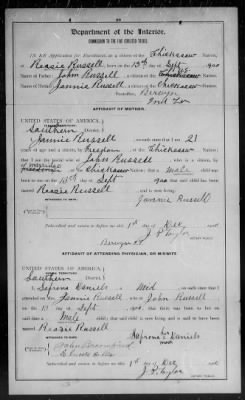 Department of the Interior.
COMMISSION TO THE FIVE CIVILIZED TRIBES.
IN RE Application for Enrollment, as a citizen of the Chickasaw Nation,
of Reasie Russell born on the 13th day of Sept 190
Name of Father: John Russell a citizen of the Nation.
Name of Mother: Jannie Russell a citizen of the Chickasaw Nation.
Postoffice, Berwyn
Ind Ter
AFFIDAVIT OF MOTHER.
UNITED STATES OF AMERICA,
INDIAN TERRITORY,
Southern District.
I, Jannie Russell, on oath state that I am 21
years of age and a citizen by Freedom, of the Chickasaw Nation,
that I am the lawful wife of John Russell, who is a citizen, by
of the Chickasaw Nation; that a male child was
born to me on the 13th day of Sept; that said child has been
named Reasie Russell, and is now living.
Jannie Russell
Subscribed and sworn to before me this 1st day of Dec
J. T. Taylor
Berwyn I.T.
AFFIDAVIT OF ATTENDING PHYSICIAN, OR MIDWIFE.
UNITED STATES OF AMERICA,
INDIAN TERRITORY,
Southern District.
I, Safrona Daniels, a Mid, on oath state that I
attended on Mrs. Jannie Russell, wife of John Russell
on the 13 day of Sept; that there was born to her on said date a
Male child; that said child is now living and is said to have been
named Reasie Russell
Safrona her Daniels
Subscribed and sworn to before me this 1st day of Dec
J. T. Taylor